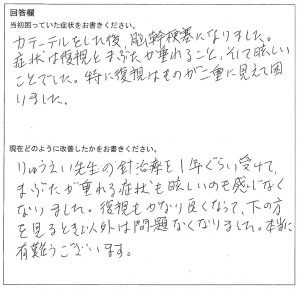 回答欄
当初困っていた症状をお書きください。
カテーテルをした後、脳幹梗塞になりました。
症状は復視とまぶたが垂れること、そして眩しい
ことでした。特に復視はものが二重に見えて困
りました。
現在どのように改善したかをお書きください。
りゅうえい先生の針治療を1年ぐらい受けて、
まぶたが垂れる症状も眩しいのも感じなく
なりました。復視もかなり良くなって、下の方
を見るとき以外は問題なくなりました。本当に
有難うございます。